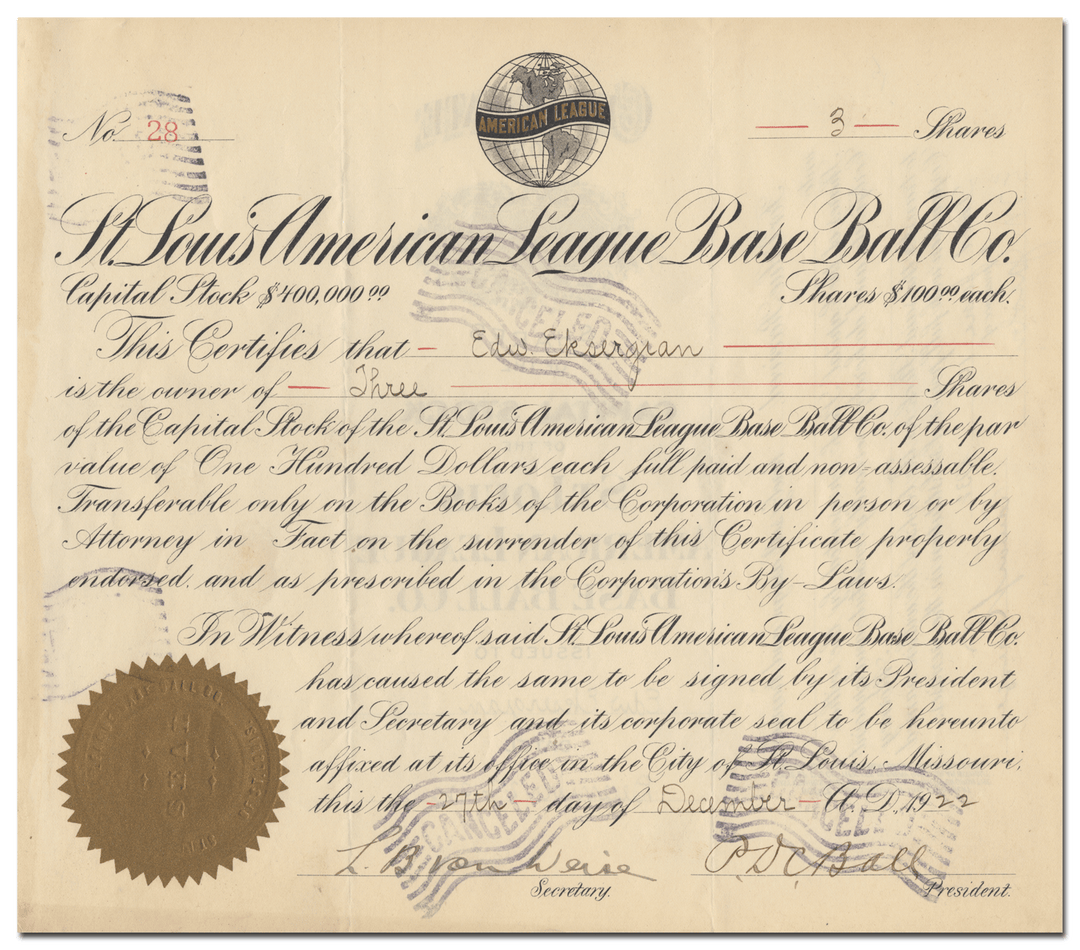 AMERICAN LEAGUE
No. 28
3 Shares
St. Louis American League Base Ball Co.
Capital Stock $400,000.00
Shares $100.00 each.
This Certifies that Edw. Eksergian
is the owner of Three Shares
of the Capital Stock of the St. Louis American League Base Ball Co. of the par
value of One Hundred Dollars each full paid and non-assessable.
Transferable only on the Books of the Corporation in person or by
Attorney in Fact on the surrender of this Certificate properly
endorsed, and as prescribed in the Corporation's By-Laws.
In Witness whereof said St. Louis American League Base Ball Co.
has caused the same to be signed by its President
and Secretary and its corporate seal to be hereunto
affixed at its office in the City of St. Louis, Missouri,
this the 27th day of December A.D. 1922
L. B. von Weise
Secretary.
P. DeC. Ball
President.
CANCELED
CANCELED
CANCELED
SEAL